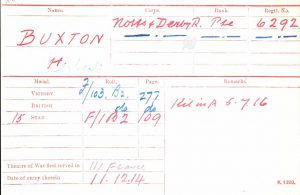 Name. Corps. Rank Regtl. No.
BUXTON Notts & Derby R. Pte 6292
H.
Medal. Roll. Page. Remarks.
VICTORY 2/103. B2. 277
BRITISH do do Kil in A 5.7.16
15 STAR F/1 B2 109
Theatre of War first served in (1) France
Date of entry therein 11.12.14
K. 1380.